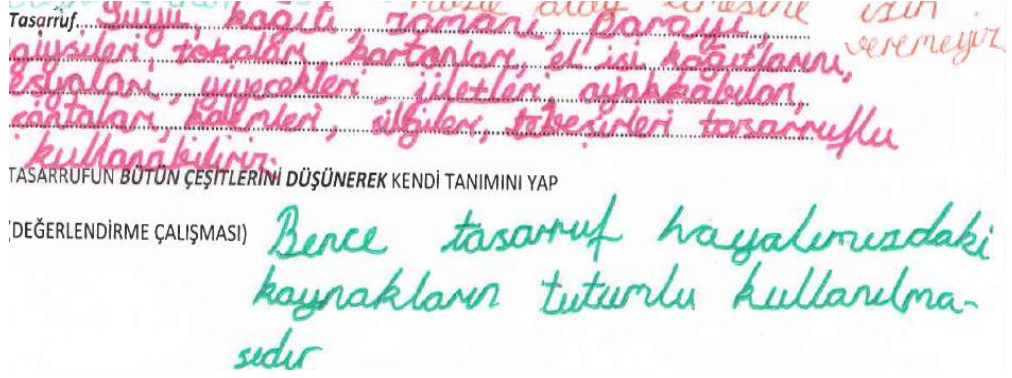 izin
Tasarruf... Suyu, kağıtı zamanı, parayı, veremeyiz
giysileri, tokaları, kartonları, el işi kağıtlarını,
eşyaları, yiyecekleri, jiletleri, ayakkabıları,
çantaları, kalemleri, silgileri, tebeşirleri tasarruflu
kullanabiliriz.
TASARRUFUN BÜTÜN ÇEŞİTLERİNİ DÜŞÜNEREK KENDİ TANIMINI YAP
(DEĞERLENDİRME ÇALIŞMASI) Bence tasarruf hayalımızdaki
kaynakların tutumlu kullanılma-
sıdır